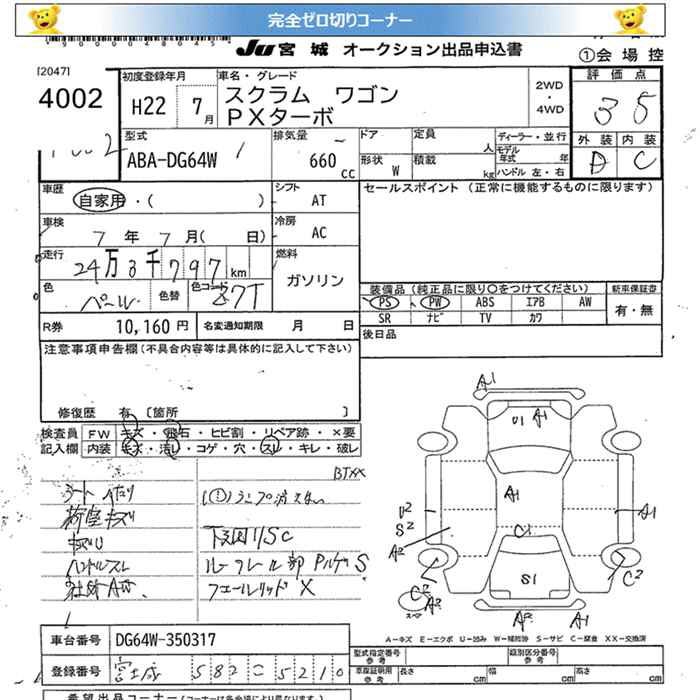 完全ゼロ切りコーナー
JU 宮城 オークション出品申込書
①会場控
[2047]
4002
初度登録年月
H22 7月
車名・グレード
スクラム ワゴン
PXターボ
2WD
・
4WD
評価点
3 5
外装 内装
D C
型式
ABA-DG64W
排気量
660 cc
ドア
形状 W
定員 人
積載 kg
ディーラー・並行
モデル年式 年
ハンドル 左・右
車歴
自家用・( )
シフト
AT
セールスポイント (正常に機能するものに限ります)
車検
7年7月( 日)
冷房
AC
走行
24万3千797km
燃料
ガソリン
色
パール
色替
色コード
Z7T
装備品 (純正品に限り○をつけてください)
新車保証書
PS PW ABS エアB AW
有・無
SR ナビ TV カワ
R券 10,160円
名変通知期限 月 日
後日品
注意事項申告欄(不具合内容等は具体的に記入して下さい)
修復歴 有 〔箇所 〕
検査員 FW キズ・飛石・ヒビ割・リペア跡・×要
記入欄 内装 キズ・汚レ・コゲ・穴・スレ・キレ・破レ
シートヘタリ
ハンドルスレ
下廻りSC
フューエルリッド X
A1
U1 A1
A1
U2
S2
A2
C1
A1
S1
C2
C2
スペア
A2
A2 A1
A-キズ E-エクボ U-凹み W-補修跡 S-サビ C-腐食 XX-交換済
車台番号 DG64W-350317
型式指定番号 参考
類別区分番号 参考
登録番号 宮城 582 こ 5210
車庫証明用 参考 長さ 幅 高さ
cm cm cm
希望出品コーナー